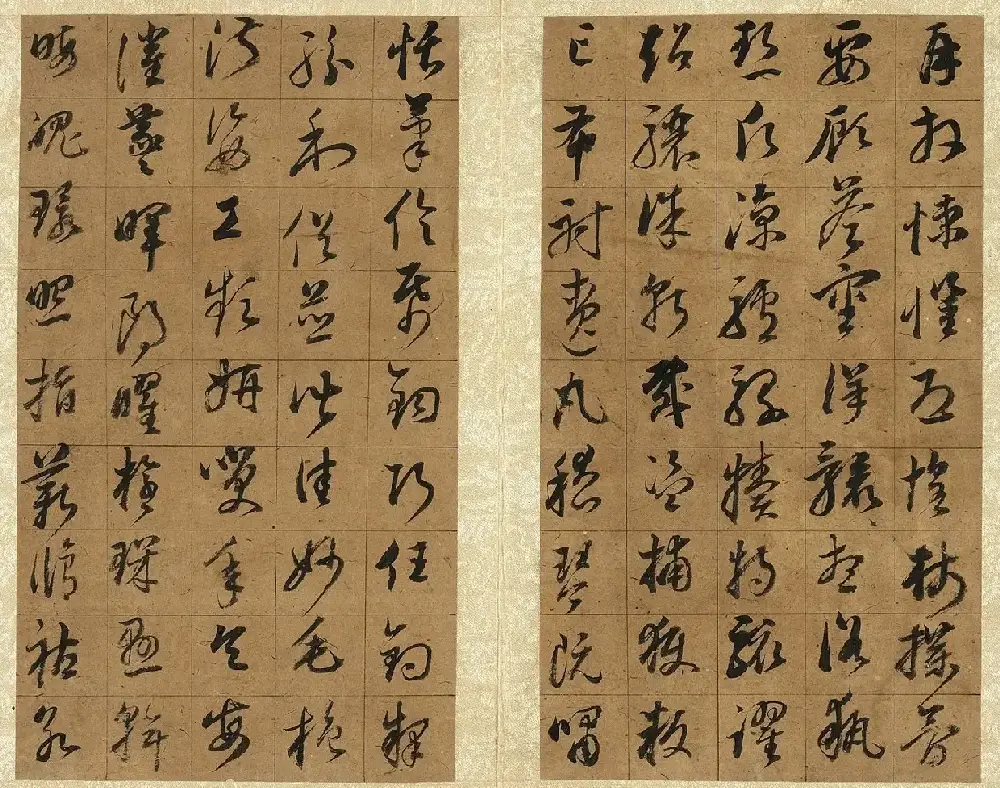 再拜悚懼恐惶牋牒簡
要顧答審詳骸想浴執
熱願涼驢騾犢特駭躍
超驤誅斬賊盜捕獲叛
亡布射遼丸嵇琴阮嘯
恬筆倫紙鈞巧任釣釋
紛利俗並皆佳妙毛施
淑姿工顰妍笑年矢每
催羲暉朗曜璇璣懸斡
晦魄環照指薪脩祜永